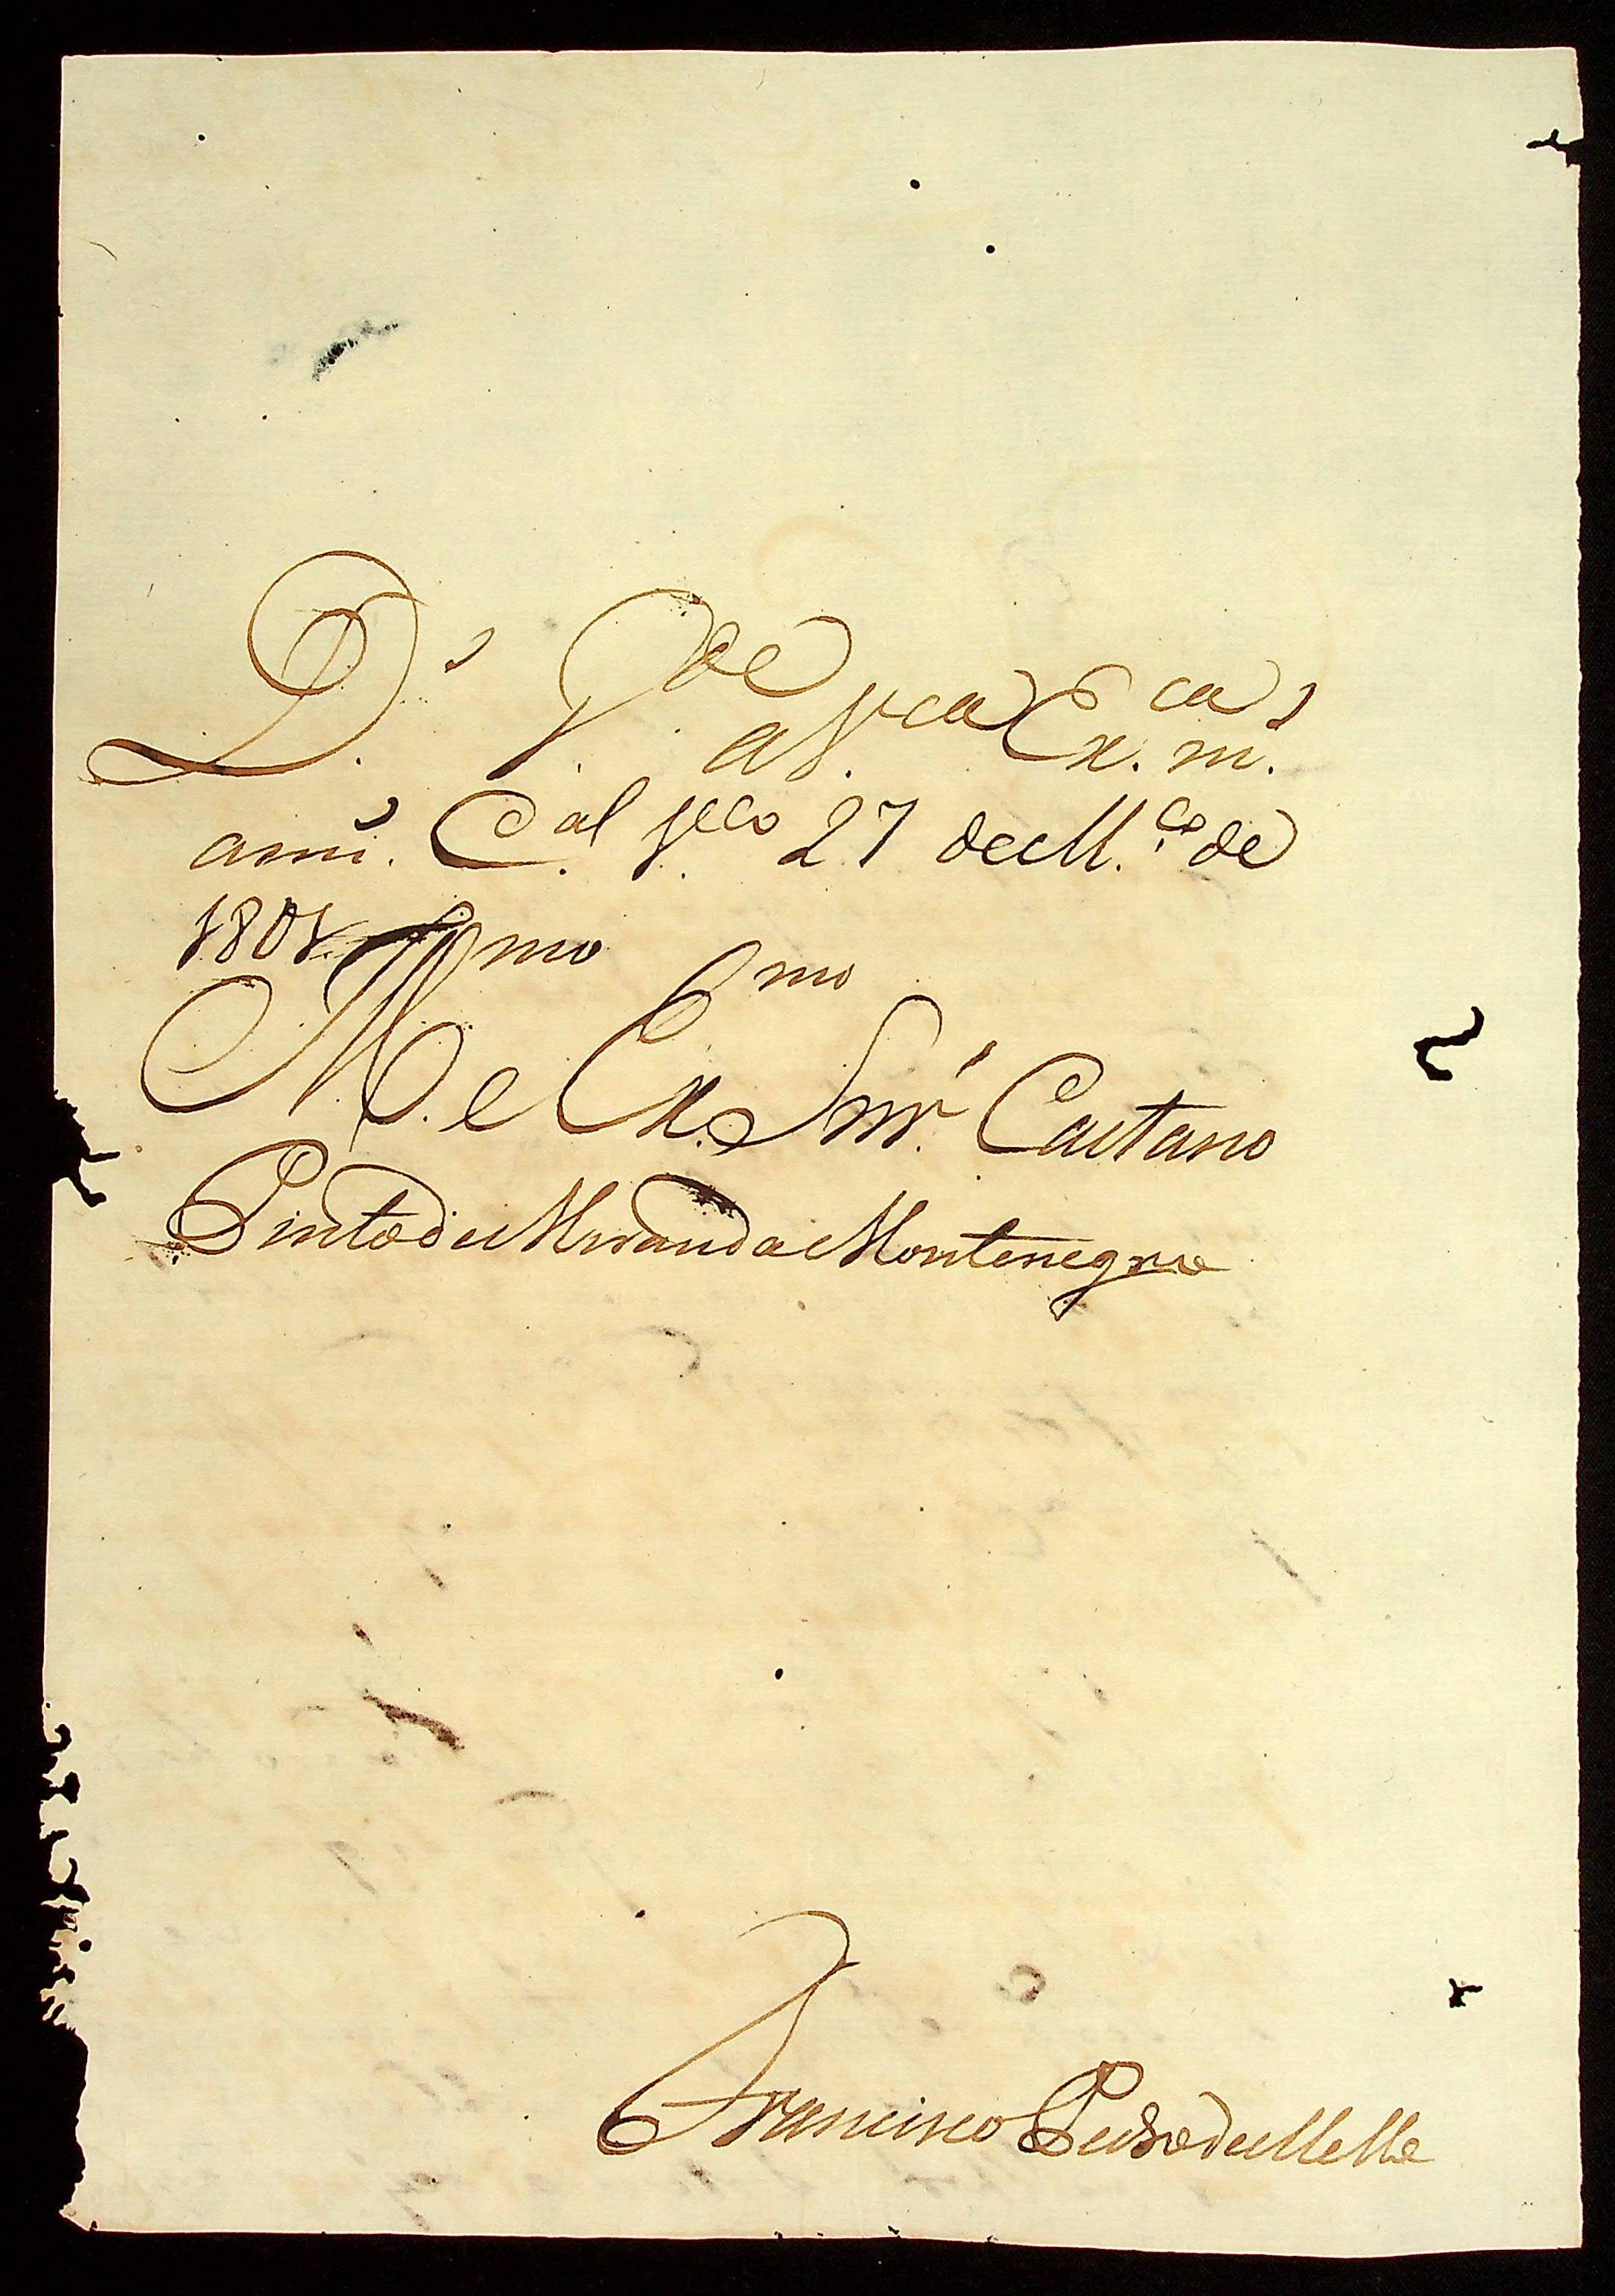 D.s G.de a V.ca Ex.ca m.s
ann.s C.al V.co 27 de M.ço de
1801
Ill.mo e Ex.mo Snr.' Caetano
Pinto de Miranda Montenegro
Francisco Pedro de Mello